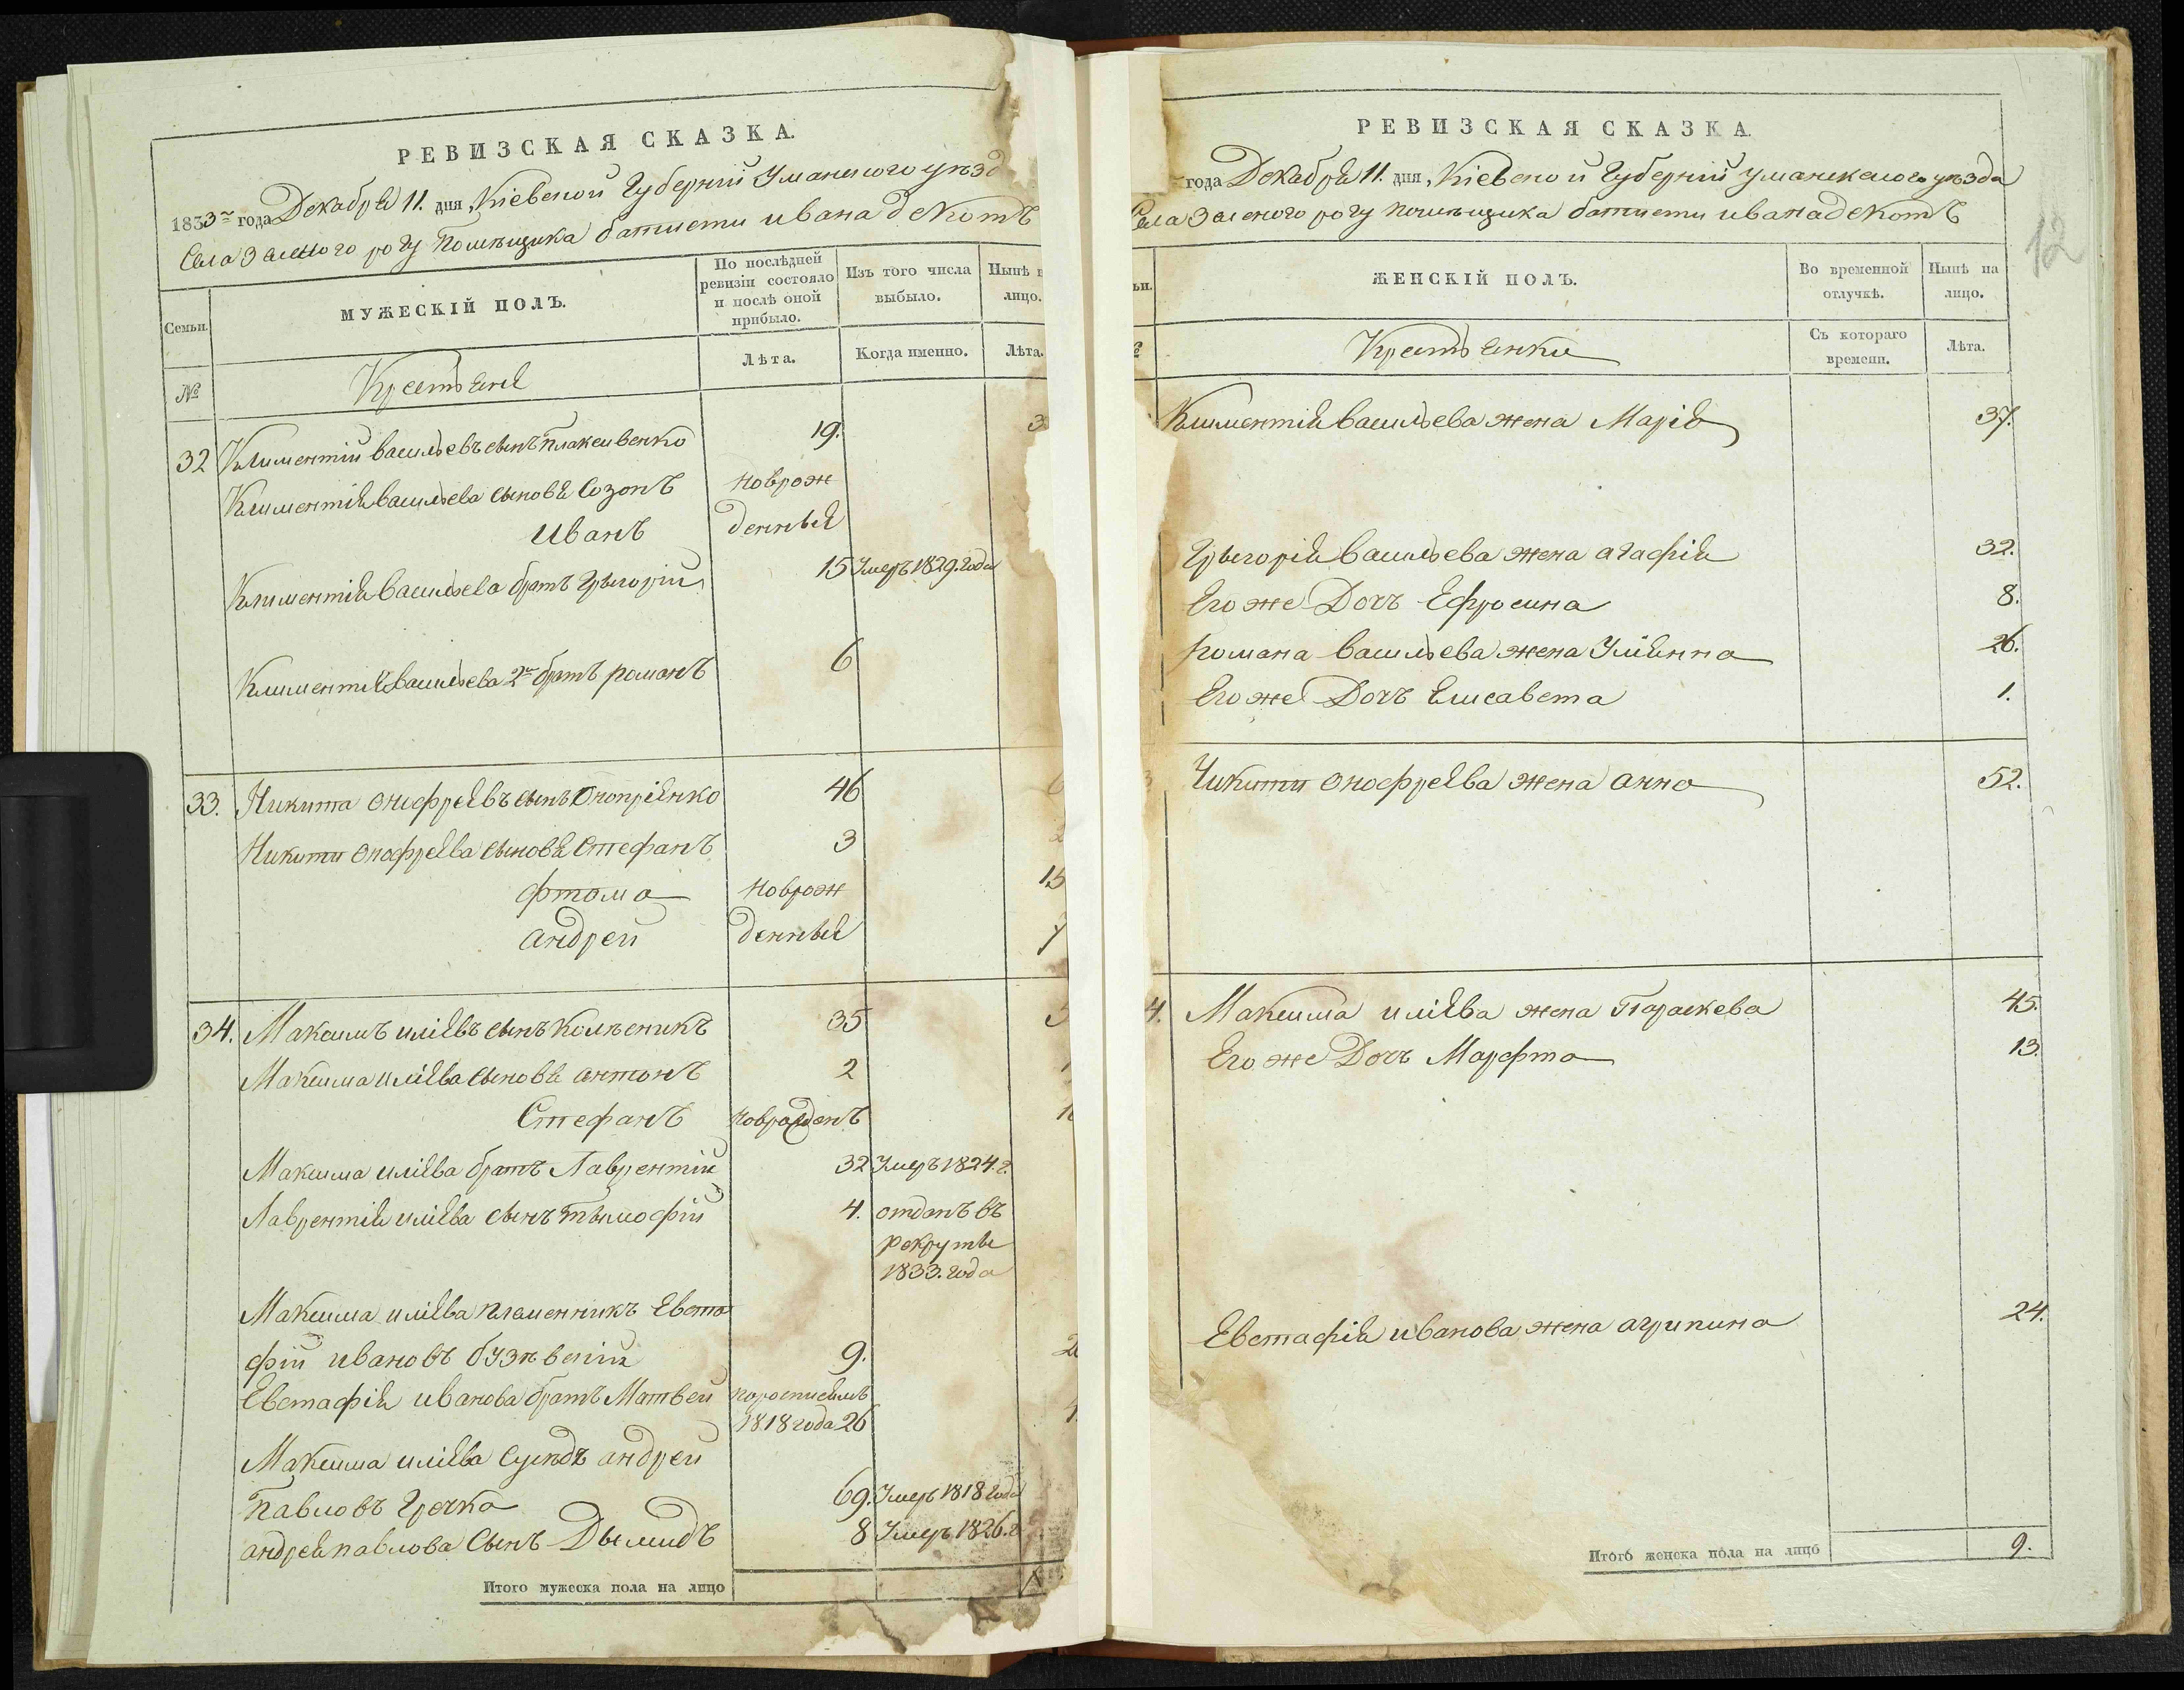 РЕВИЗСКАЯ СКАЗКА.
1833го года Декабря 11. дня, Кіевской Губерніи Уманского уѣзд
Села Зеленого рогу Помѣщика батисти ивана декотъ
Семьи.
МУЖЕСКІЙ ПОЛЪ.
По послѣдней ревизіи состояло и послѣ оной прибыло.
Изъ того числа выбыло.
Нынѣ н
лицо.
№
Крестьяне
Лѣта.
Когда именно.
Лѣта.
32 Климентій васильевъ сынъ Плаксивенко 19. 3
Климентія васильева сыновя Созонъ новрож
Иванъ денныя
Климентія васильева братъ Грыгорій 15 Умеръ 1829. года
Климентія васильева 2й братъ романъ 6
33. Никита онофреевъ сынъ Оноприенко 46 6
Никити онофреева сыновя Стефанъ 3 2
фтома новрож 15
андрей денныя 7
34. Максимъ иліевъ сынъ колѣсникъ 35 5
Максима иліева сыновя антонъ 2 1
Стефанъ новрожденъ 1
Максима иліева братъ Лаврентій 32 Умеръ 1824. г.
Лаврентія иліева сынъ тымофій 4. отданъ въ
рекруты
1833. года
Максима иліева племенникъ Евста
фій ивановъ 9. 2
Евстафія иванова братъ Матвей
1818 года 26
Максима иліева сусѣдъ андрей
Павловъ Гречка 69. Умеръ 1818 года
андрея павлова Сынъ Дымидъ 8 Умеръ 1826. г
Итого мужеска пола на лицо
РЕВИЗСКАЯ СКАЗКА.
года Декабря 11. дня, Кіевской Губерніи Уманского уѣзда
Села Зеленого рогу помѣщика батисти ивана декотъ
12
ьи.
ЖЕНСКІЙ ПОЛЪ.
Во временной отлучкѣ.
Нынѣ на лицо.
Крестьянки
Съ котораго времени.
Лѣта.
Климентія васильева жена Марія 37.
Грыгорія васильева жена агафія 32.
Его же Дочь Ефросина 8.
романа васильева жена Уліянна 26.
Его же Дочь Елисавета 1.
Никити онофреева жена анна 52.
4. Максима иліева жена Параскева 45.
Его же Дочь Марфта 13.
Евстафія иванова жена агрипина 24.
Итого женска пола на лицо 9.